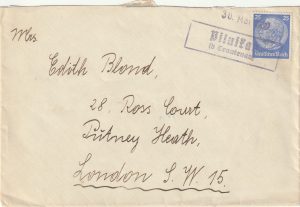 Mrs.
Edith Blond,
28. Ross Court,
Putney Heath,
London S. W. 15.
30.
25 25
Deutsches Reich